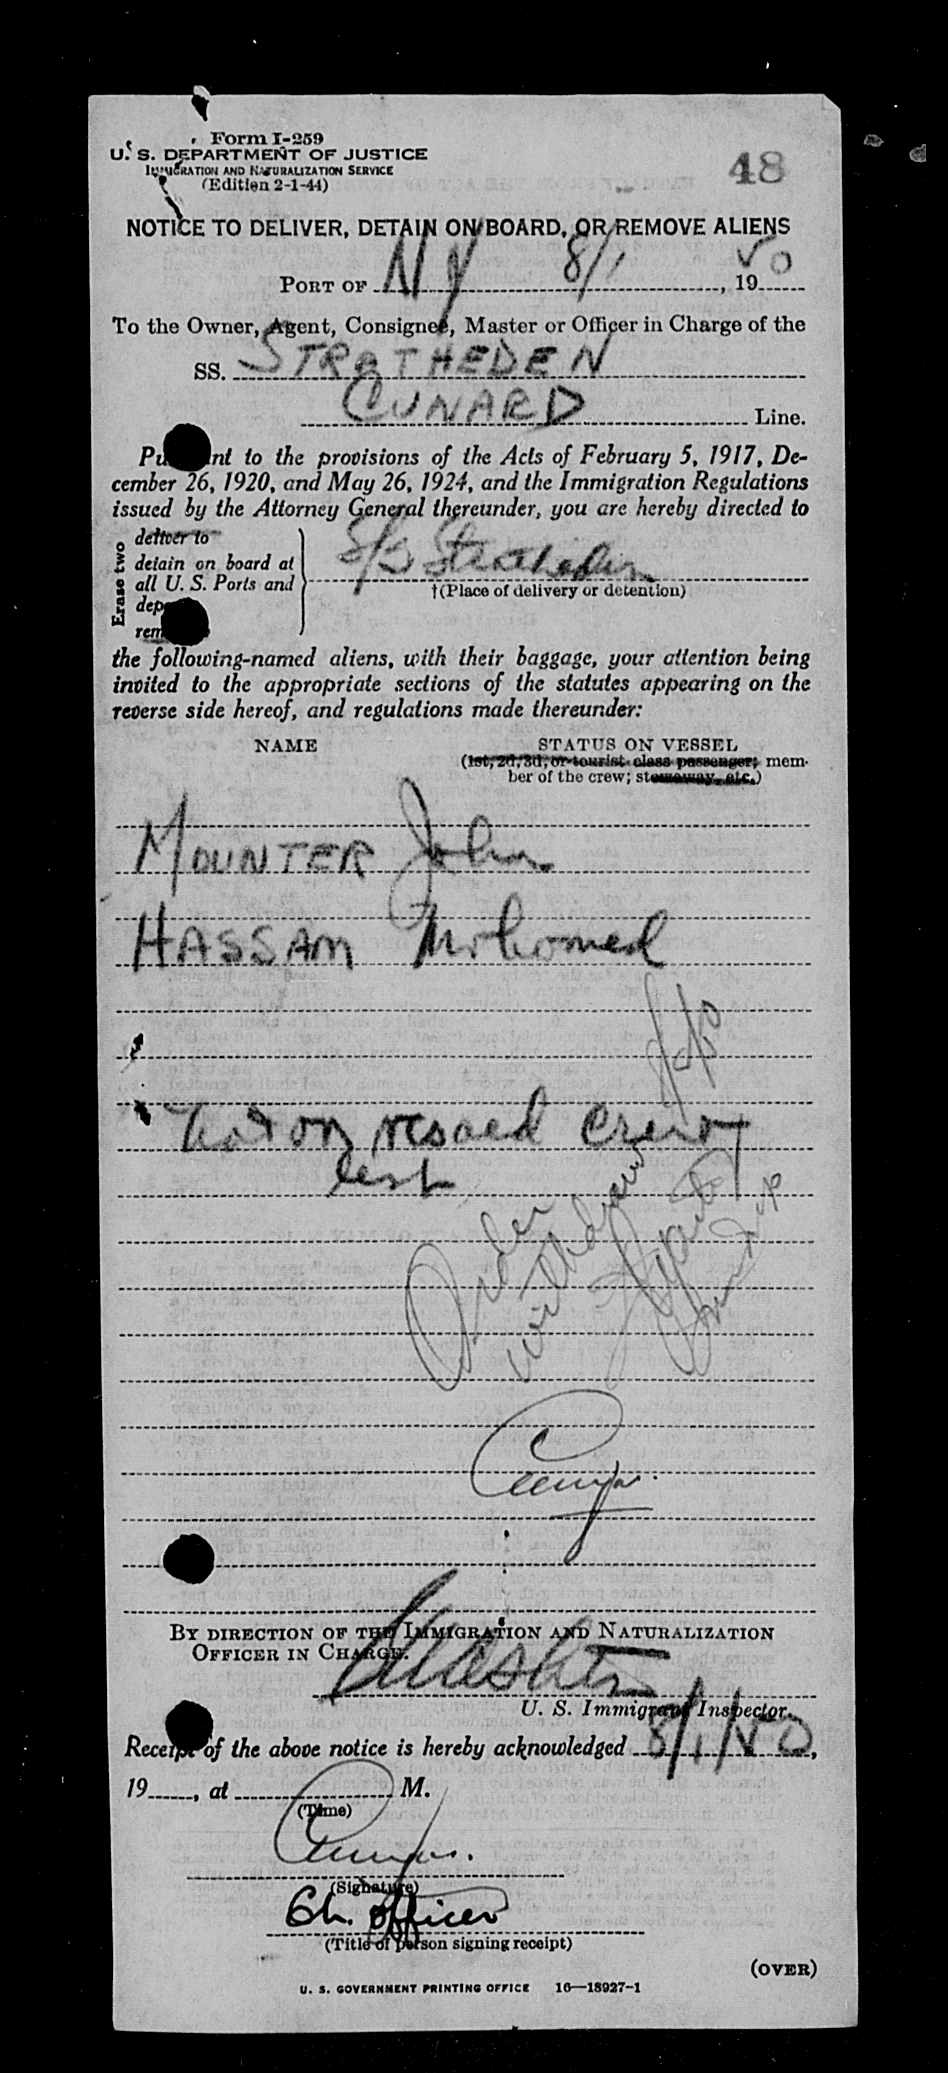 Form I-259
U. S. DEPARTMENT OF JUSTICE
IMMIGRATION AND NATURALIZATION SERVICE
(Edition 2-1-44)
48
NOTICE TO DELIVER, DETAIN ON BOARD, OR REMOVE ALIENS
PORT OF NY 8/1, 1950
To the Owner, Agent, Consignee, Master or Officer in Charge of the
SS. STRATHEDEN
CUNARD Line.
Pu nt to the provisions of the Acts of February 5, 1917, De-
cember 26, 1920, and May 26, 1924, and the Immigration Regulations
issued by the Attorney General thereunder, you are hereby directed to
Erase two
deliver to
detain on board at
all U. S. Ports and
dep
rem
S/S Stratheden
†(Place of delivery or detention)
the following-named aliens, with their baggage, your attention being
invited to the appropriate sections of the statutes appearing on the
reverse side hereof, and regulations made thereunder:
NAME STATUS ON VESSEL
(1st, 2d, 3d, or tourist class passenger; mem-
ber of the crew; stowaway, etc.)
MOUNTER John
HASSAM Mohomed
Not on visaed crew
list
Order
withdrawn
By direction of the Immigration and Naturalization
Officer in Charge.
U. S. Immigrant Inspector.
Receipt of the above notice is hereby acknowledged 8/1/50,
19, at M.
(Time)
(Signature)
Ch. Officer
(Title of person signing receipt)
(OVER)
U. S. GOVERNMENT PRINTING OFFICE 16—18927-1